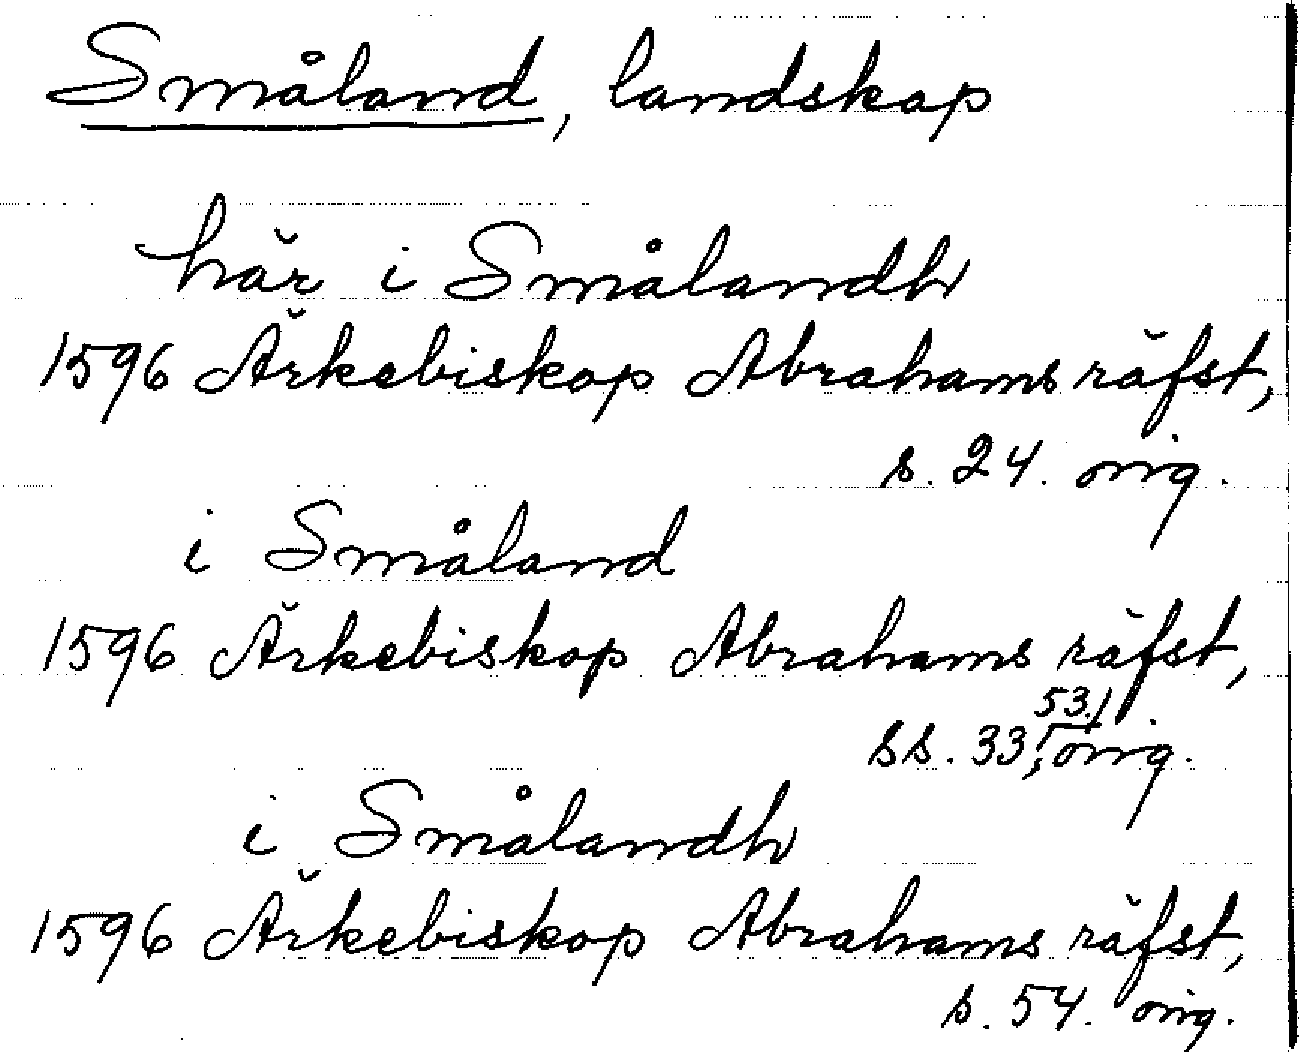 Småland, landskap
här i Smålandh
1596 Ärkebiskop Abrahams räfst,
s. 24. orig.
i Småland
1596 Ärkebiskop Abrahams räfst,
ss. 33, 53, orig.
i Smålandh
1596 Ärkebiskop Abrahams räfst,
s. 54. orig.